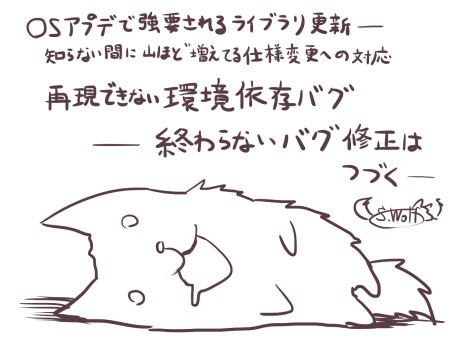 OSアプデで強要されるライブラリ更新―
知らない間に山ほど増えてる仕様変更への対応
再現できない環境依存バグ
― 終わらないバグ修正は
つづく―
S.Wolf